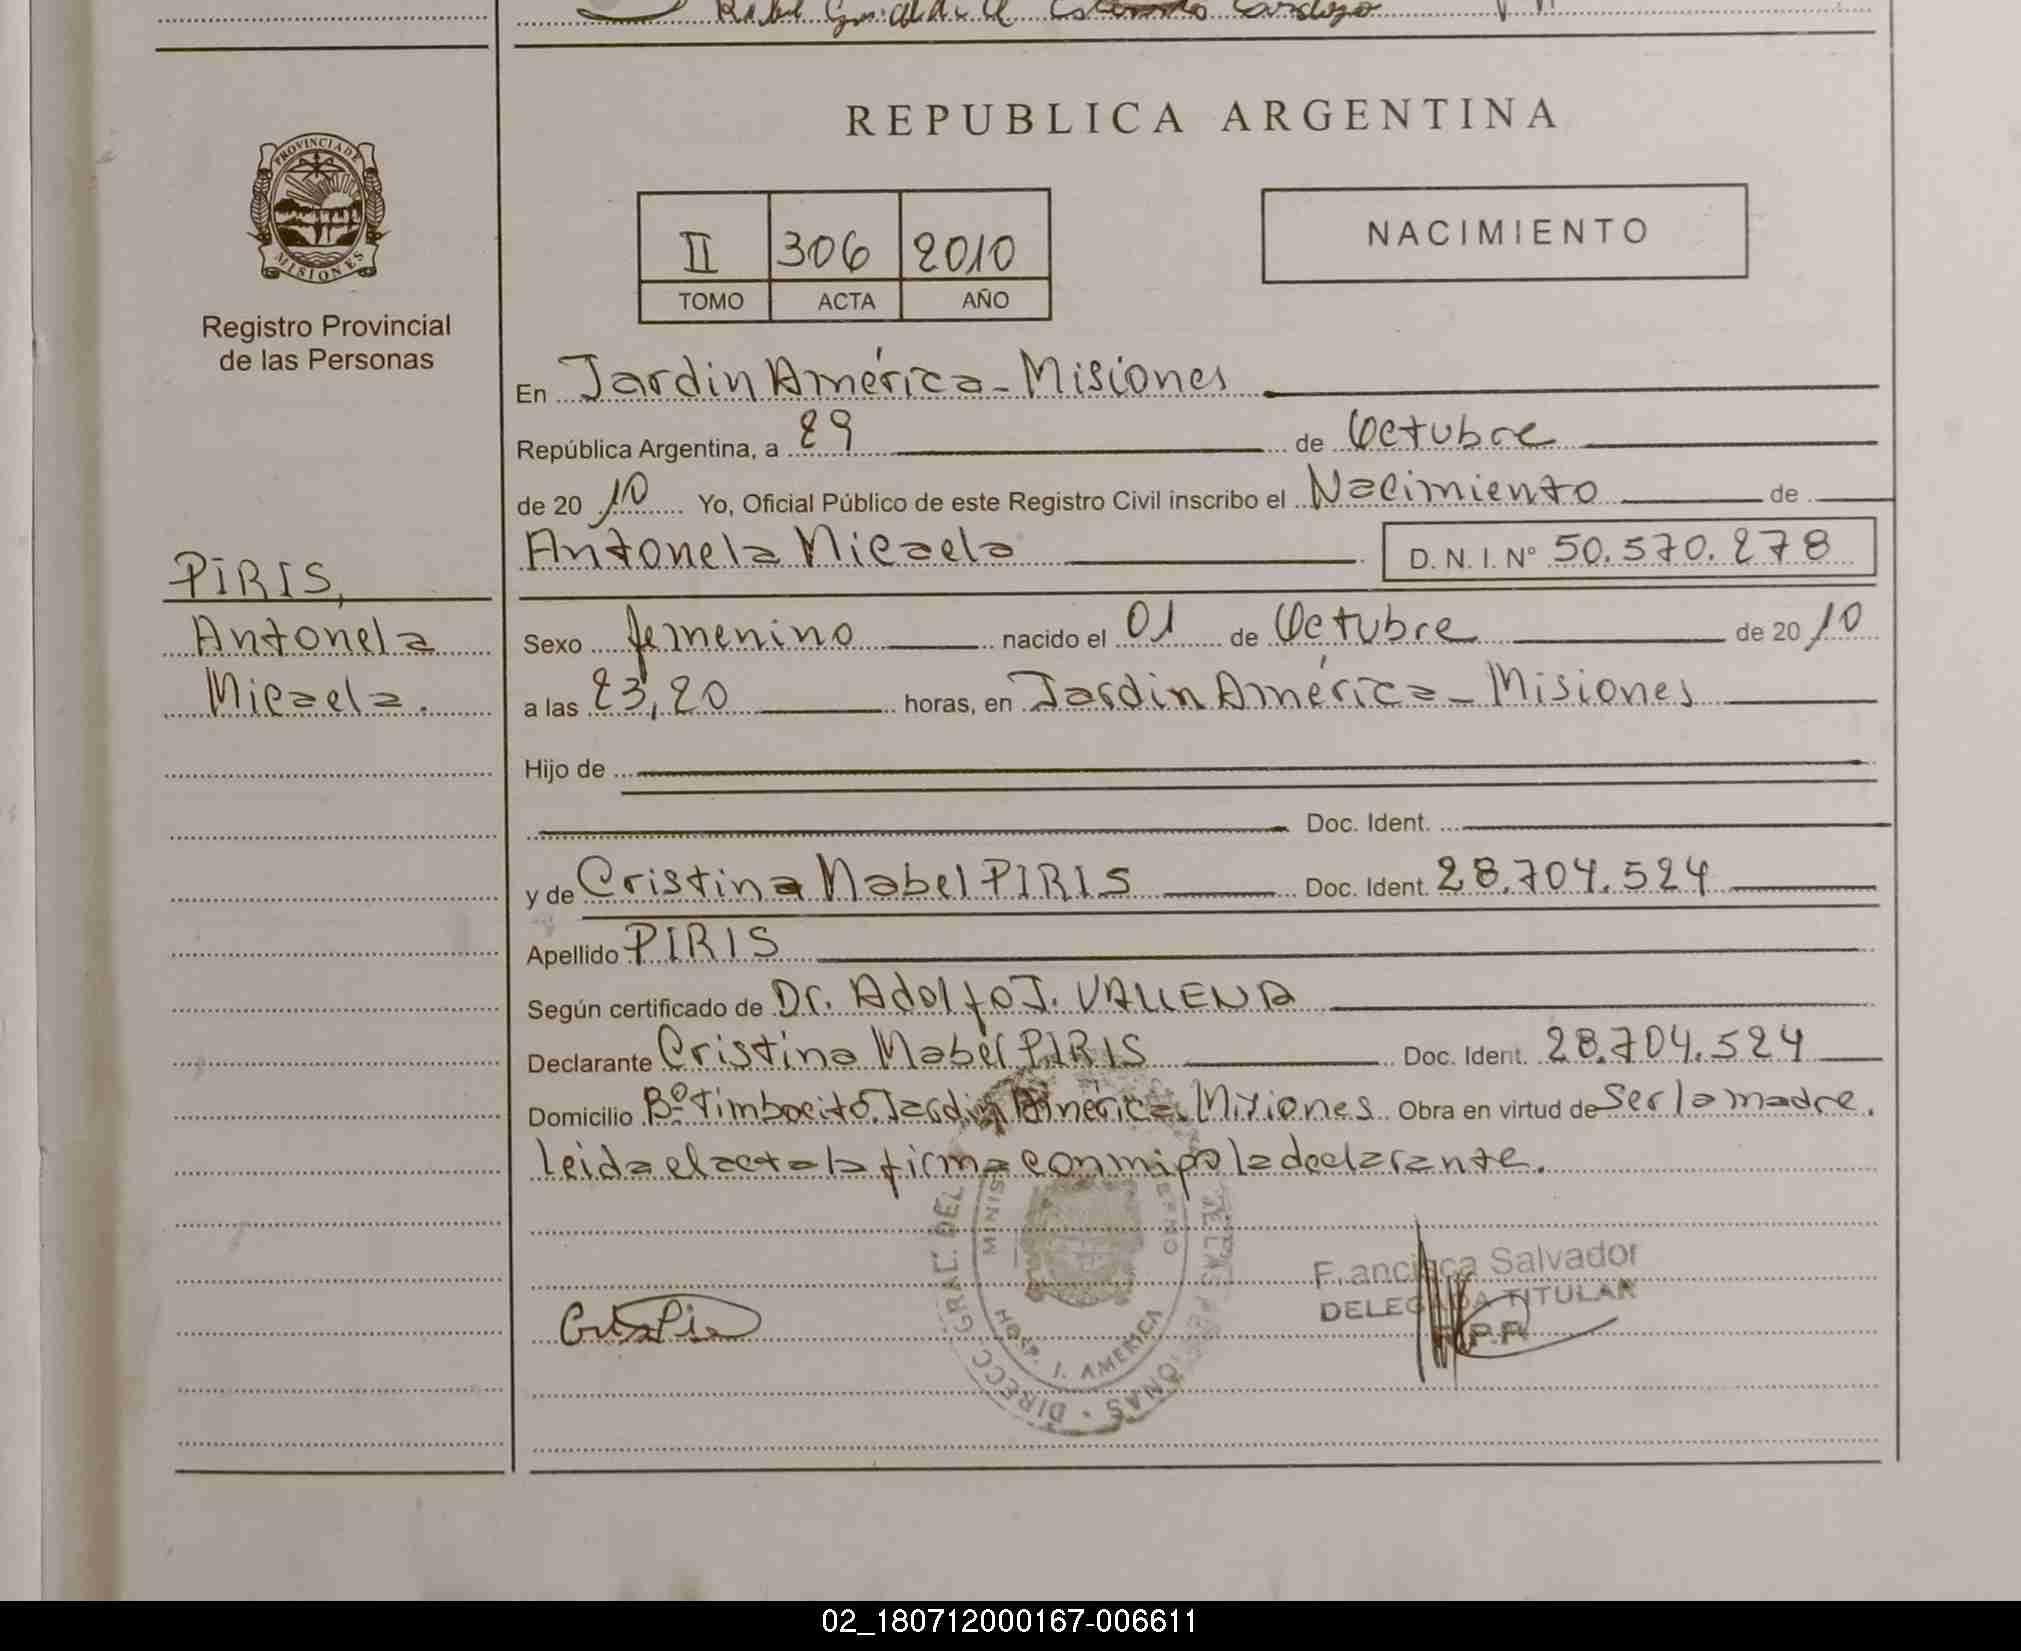 REPUBLICA ARGENTINA
PROVINCIA DE
MISIONES
Registro Provincial
de las Personas
II 306 2010
TOMO ACTA AÑO
NACIMIENTO
En Jardin América - Misiones
República Argentina, a 29 de Octubre
de 2010 Yo, Oficial Público de este Registro Civil inscribo el Nacimiento de
Antonela Micaela D. N. I. Nº 50.570.278
PIRIS,
Antonela
Micaela.
Sexo femenino nacido el 01 de Octubre de 2010
a las 23,20 horas, en Jardin América - Misiones
Hijo de
Doc. Ident.
y de Cristina Mabel PIRIS Doc. Ident. 28.704.524
Apellido PIRIS
Según certificado de Dr. Adolfo J. VALLENA
Declarante Cristina Mabel PIRIS Doc. Ident. 28.704.524
Domicilio Bº Timbocito. Jardin América. Misiones Obra en virtud de Ser la madre.
Leida el acta la firma conmigo la declarante.
Francisca Salvador
DELEGADA TITULAR
R.P.P.
DIRECC. GRAL. DEL DE LAS PERSONAS
HOSP. J. AMERICA
02_180712000167-006611